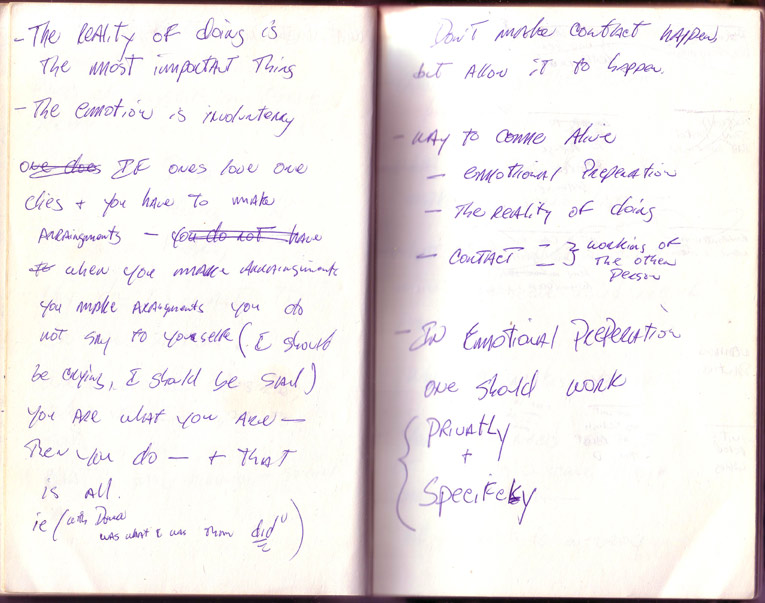 - The reality of doing is
the most important thing
- The emotion is involuntery
one does IF ones love one
dies + you have to make
arraingments - you do not have
to when you make arraingments
you make arraingments you do
not say to yourselfe (I should
be crying, I should be sad)
you are what you are —
then you do — + that
is all.
ie (with
was what I was then did")
Don't make contact happen,
but allow it to happen.
- way to come Alive
- emotional Preparation
- The reality of doing
- contact = } working of
the other
person
- In Emotional Preperation
one should work
{ Privatly
+
Specifickly